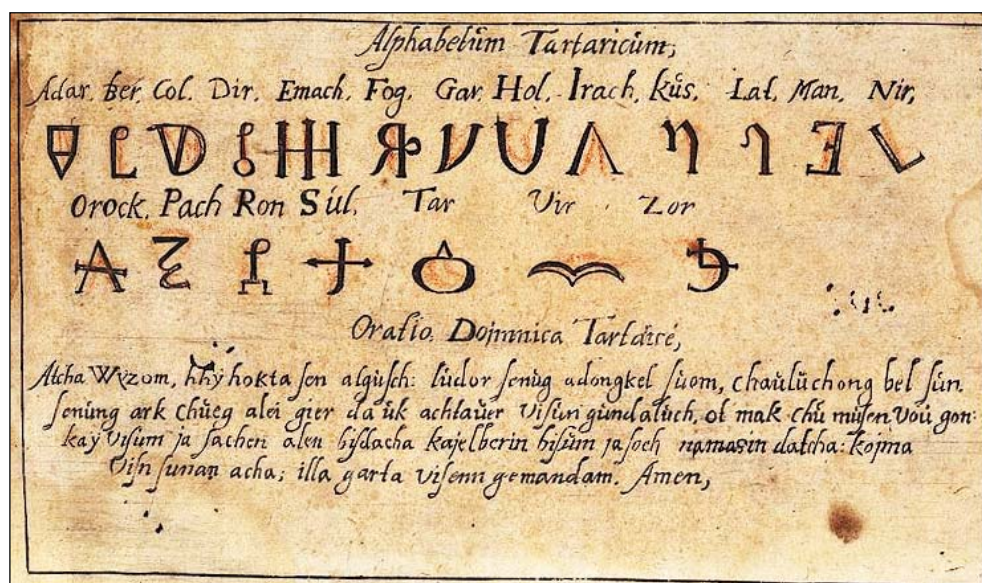 Alphabetüm Tartaricüm,
Adar. Ber. Col. Dir. Emach. Fog. Gar. Hol. Irach. küs. Lat. Man. Nir,
Orock. Pach Ron Súl. Tar Vir Zor
Oratio, Dominica Tartaricé,
Atcha Wyzom, hhy hokta sen algusch: lüdor senüg adongkel süom, chaülüchong bel sün.
senüng ark chüeg alei gier da ük achtaüer visün gündalüch, ol mak chü müsen, voü gon:
kaÿ visum ja sachen alen bisdacha kajelberin bisüm ja soch namasin datcha: kojma
visn sunan acha; illa garta visenn gemandam. Amen,